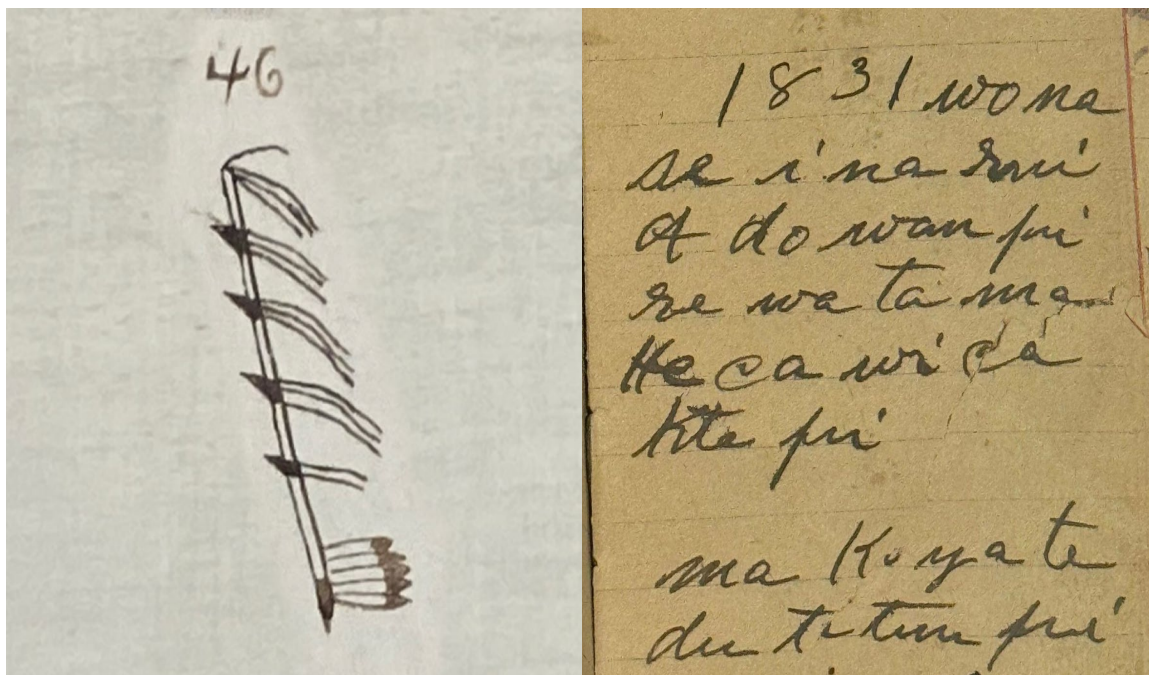 46
1831 wo na
se i na zni
A do wan pi
ze wa ta ma
He ca wi ca
Kte pi
ma Ko ya te
du te tun pi